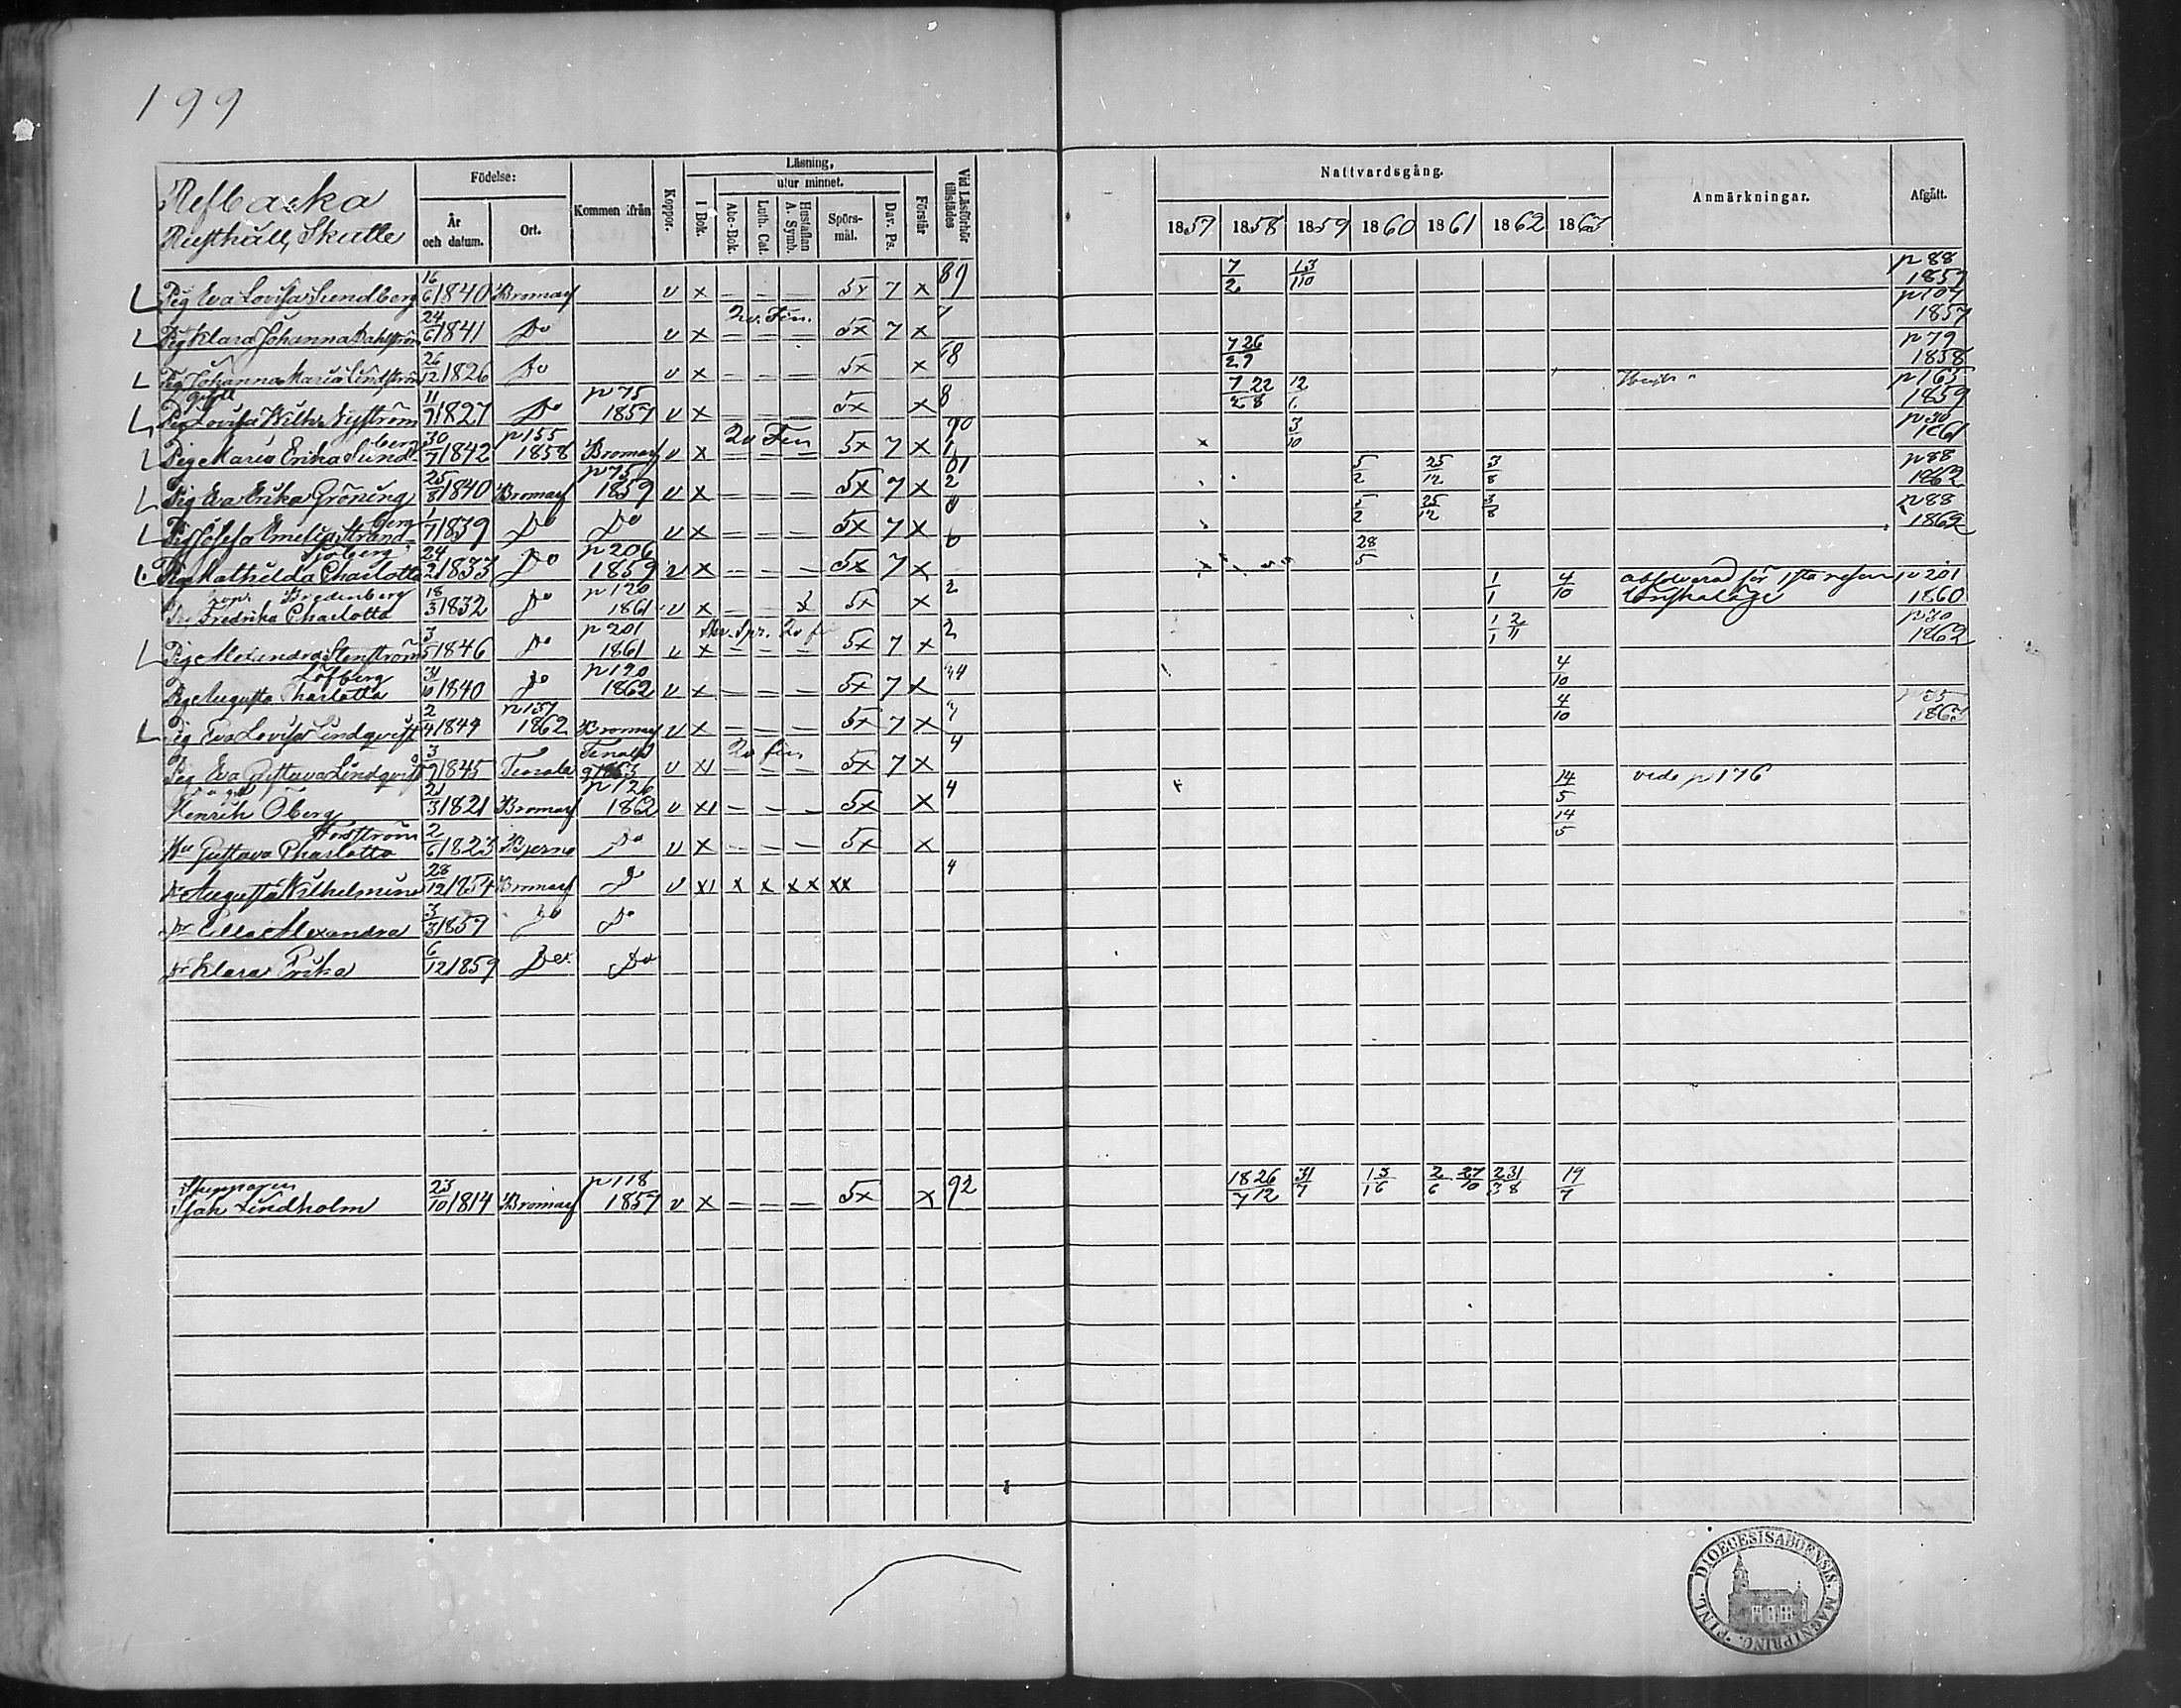 199
Refbacka
Rusthåll, Skatte
Födelse: År och datum. Ort. Kommen ifrån Koppor. Läsning, I Bok. utur minnet. Abc-Bok. Luth. Cat. Hustaflan A. Symb. Spörs-mål. Dav. Ps. Förstår Vid Läsförhör tillstädes Nattvardsgång. 1857 1858 1859 1860 1861 1862 1863 Anmärkningar. Afgått.
Pig Eva Lovisa Sundberg 16/6 1840 Bromarf v x – – – 5x 7 x 89 7/2 13/10 p 88 1859
Pig Klara Johanna Dahlström 24/6 1841 Do v x 5x 7 x 7 p 107 1857
Pig Johanna Maria Lindström 26/12 1826 Do v x – – – 5x x 68 7/2 26/9 p 79 1858
Pig Lovisa Wilh. Nyström 11/7 1827 Do p 75 1857 v x – – – 5x x 8 7/2 22/8 12 p 163 1859
Pig Maria Erika Sundberg 30/7 1842 p 155 1858 Bromarf v x 5x 7 x 3/10 p 30 1861
Pig Eva Erika Gröning 25/8 1840 Bromarf p 75 1859 v x – – – 5x 7 x 5/2 25/12 3/8 p 88 1862
Pig Josefa Emelia Strandberg 1/7 1839 Do Do v x – – – 5x 7 x 5/2 25/12 3/8 p 88 1862
Pig Mathilda Charlotta Sjöberg 24/2 1833 Do p 206 1859 v x – – – 5x 7 x 28/5
Fredrika Charlotta Bredenberg 18/3 1832 Do p 120 1861 v x 5x x 2 1/1 4/10 absolverad för 1sta resan lönskaläge p 201 1860
Pig Alexandra Stenström 3/5 1846 Do p 201 1861 v x – – – 5x 7 x 2 1/1 2/11 p 30 1862
Pig Augusta Charlotta Löfberg 1840 Do p 120 1862 v x – – – 5x 7 x 4/10
Pig Eva Lovisa Lindqvist 2/4 1844 p 137 1862 Bromarf v x – – – 5x 7 x 4/10 1863
Pig Eva Gustava Lindqvist 3/9 1845 Tenala Tenala v x 5x 7 x 4
Henrik Öberg 21/3 1821 Bromarf p 126 1862 v x – – – 5x x 4 14/5 vide p 176
Hu Gustava Charlotta Forsström 2/6 1823 Bjerno Do v x – – – 5x x 14/5
dr Augusta Wilhelmina 28/12 1854 Bromarf Do v x x x x x xx 4
dr Ulla Alexandra 3/3 1857 Do Do
dr Klara Erika 6/12 1859 Do Do
Joh Lindholm 23/10 1814 Bromarf p 118 1857 v x – – – 5x x 92 18/7 26/12 31/7 2/6 27/10 2/3 31/8 19/7
FINL. DIOECESIS ABOENSIS. MAGNI PRINC.